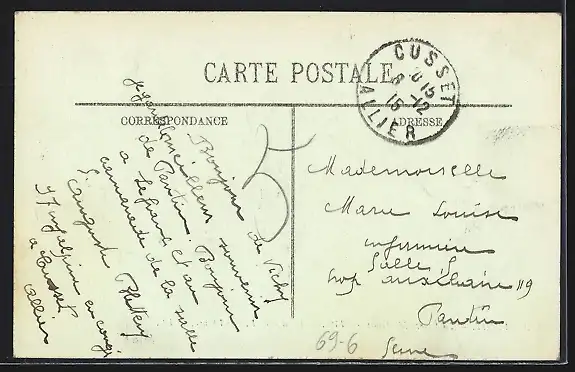 CARTE POSTALE
CUSSET
6 15
8 -12
15
ALLIER
CORRESPONDANCE
ADRESSE
Bonjour de Vichy
meilleur souvenir
de Pantin. Bonjour
a et au
camarade de la salle
S. Auguste
en congé
a Cusset
Allier
5
Mademoiselle
Marie Louise
infirmière
Salle S
hop auxiliaire 119
Pantin
Seine
69-6